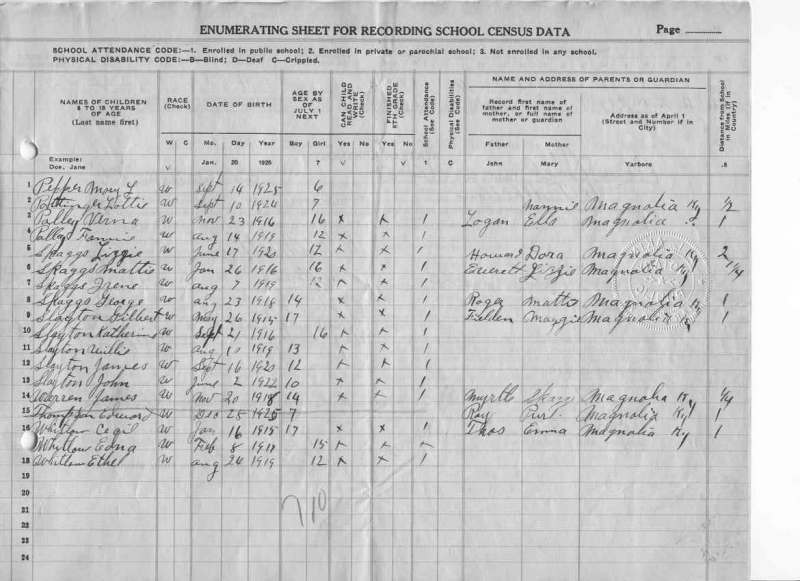 ENUMERATING SHEET FOR RECORDING SCHOOL CENSUS DATA Page
SCHOOL ATTENDANCE CODE:—1. Enrolled in public school; 2. Enrolled in private or parochial school; 3. Not enrolled in any school.
PHYSICAL DISABILITY CODE:—B—Blind; D—Deaf C—Crippled.
NAMES OF CHILDREN
6 TO 18 YEARS
OF AGE
(Last name first)
RACE
(Check)
DATE OF BIRTH
AGE BY
SEX AS
OF
JULY 1
NEXT
CAN CHILD
READ AND
WRITE
(Check)
FINISHED
8TH GRADE
(Check)
School Attendance
(See Code)
Physical Disabilities
(See Code)
NAME AND ADDRESS OF PARENTS OR GUARDIAN
Record first name of
father and first name of
mother, or full name of
mother or guardian
Address as of April 1
(Street and Number if in
City)
Distance from School
in Miles (if in
Country)
W C Mo. Day Year Boy Girl Yes No Yes No Father Mother
Example:
Doe, Jane v Jan. 20 1926 7 v v 1 C John Mary Yarbore .8
1 Pepper Mary L W Sept 14 1925 6
2 Lottie W Sept 10 1924 7 nannie Magnolia Ky 1/2
3 Palley Verna W Nov 23 1916 16 x x 1 Logan Ells Magnolia 1
4 Palley Fannie W Aug 14 1919 12 x x 1
5 Skaggs Lizzie W June 17 1920 12 x x 1 Howard Dora Magnolia Ky 2
6 Skaggs Mattie W Jan 26 1916 16 x x 1 Everett Lizzie Magnolia Ky 1/4
7 Skaggs Irene W Aug 7 1919 12 x x 1
8 Skaggs George W Aug 23 1918 14 x x 1 Roger Matto Magnolia Ky 1
9 Slayton W May 26 1915 17 x x 1 Fielden Maggie Magnolia Ky 1
10 Slayton Katherine W Sept 21 1916 16 x x 1
11 Slayton Willie W Aug 10 1919 13 x x 1
12 Slayton James W Sept 16 1920 12 x x 1
13 Slayton John W June 2 1922 10 x x 1
14 Warren James W Nov 20 1918 14 x x 1 Myrtle Skaggs Magnolia Ky 1/4
15 Thompson Edward W Dec 25 1925 7 Roy Magnolia Ky 1
16 Whitlow Cecil W Jan 16 1915 17 x x 1 Thos Emma Magnolia Ky 1
17 Whitlow Edna W Feb 8 1917 15 x x x
18 Whitlow Ethel W Aug 24 1919 12 x x 1
19
20
21
22
23
24